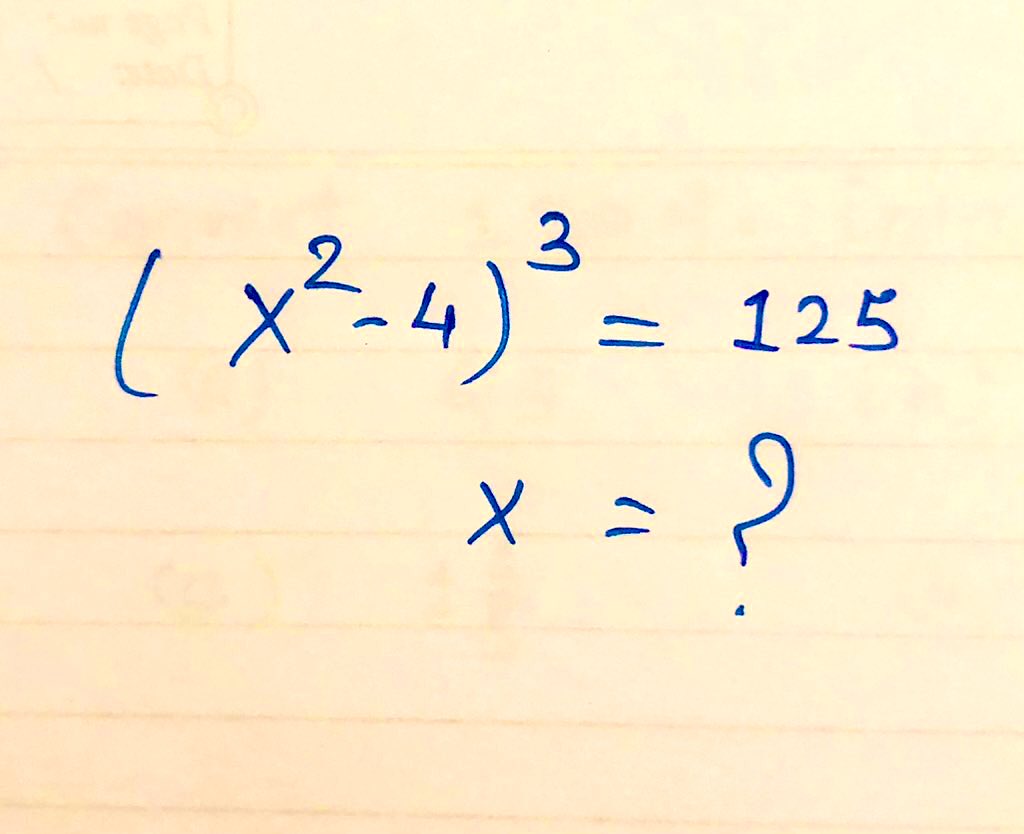 (x²-4)³ = 125
x = ?